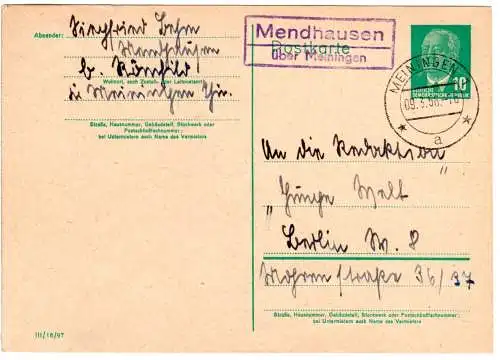 Absender: Siegfried Behm
Mendhausen
b. Römhild
Wohnort, auch Zustell- oder Leitpostamt
ü. Meiningen Thür.
Straße, Hausnummer, Gebäudeteil, Stockwerk oder
Postschließfachnummer;
bei Untermietern auch Name des Vermieters
III/18/97
Mendhausen
Postkarte
über Meiningen
MEININGEN
09.3.56.
a
10
DEUTSCHE
DEMOKRATISCHE REPUBLIK
An die Redaktion
„Junge Welt"
Berlin W. 8
Mohrenstraße 36/37
Straße, Hausnummer, Gebäudeteil, Stockwerk oder Postschließfachnummer;
bei Untermietern auch Name des Vermieters